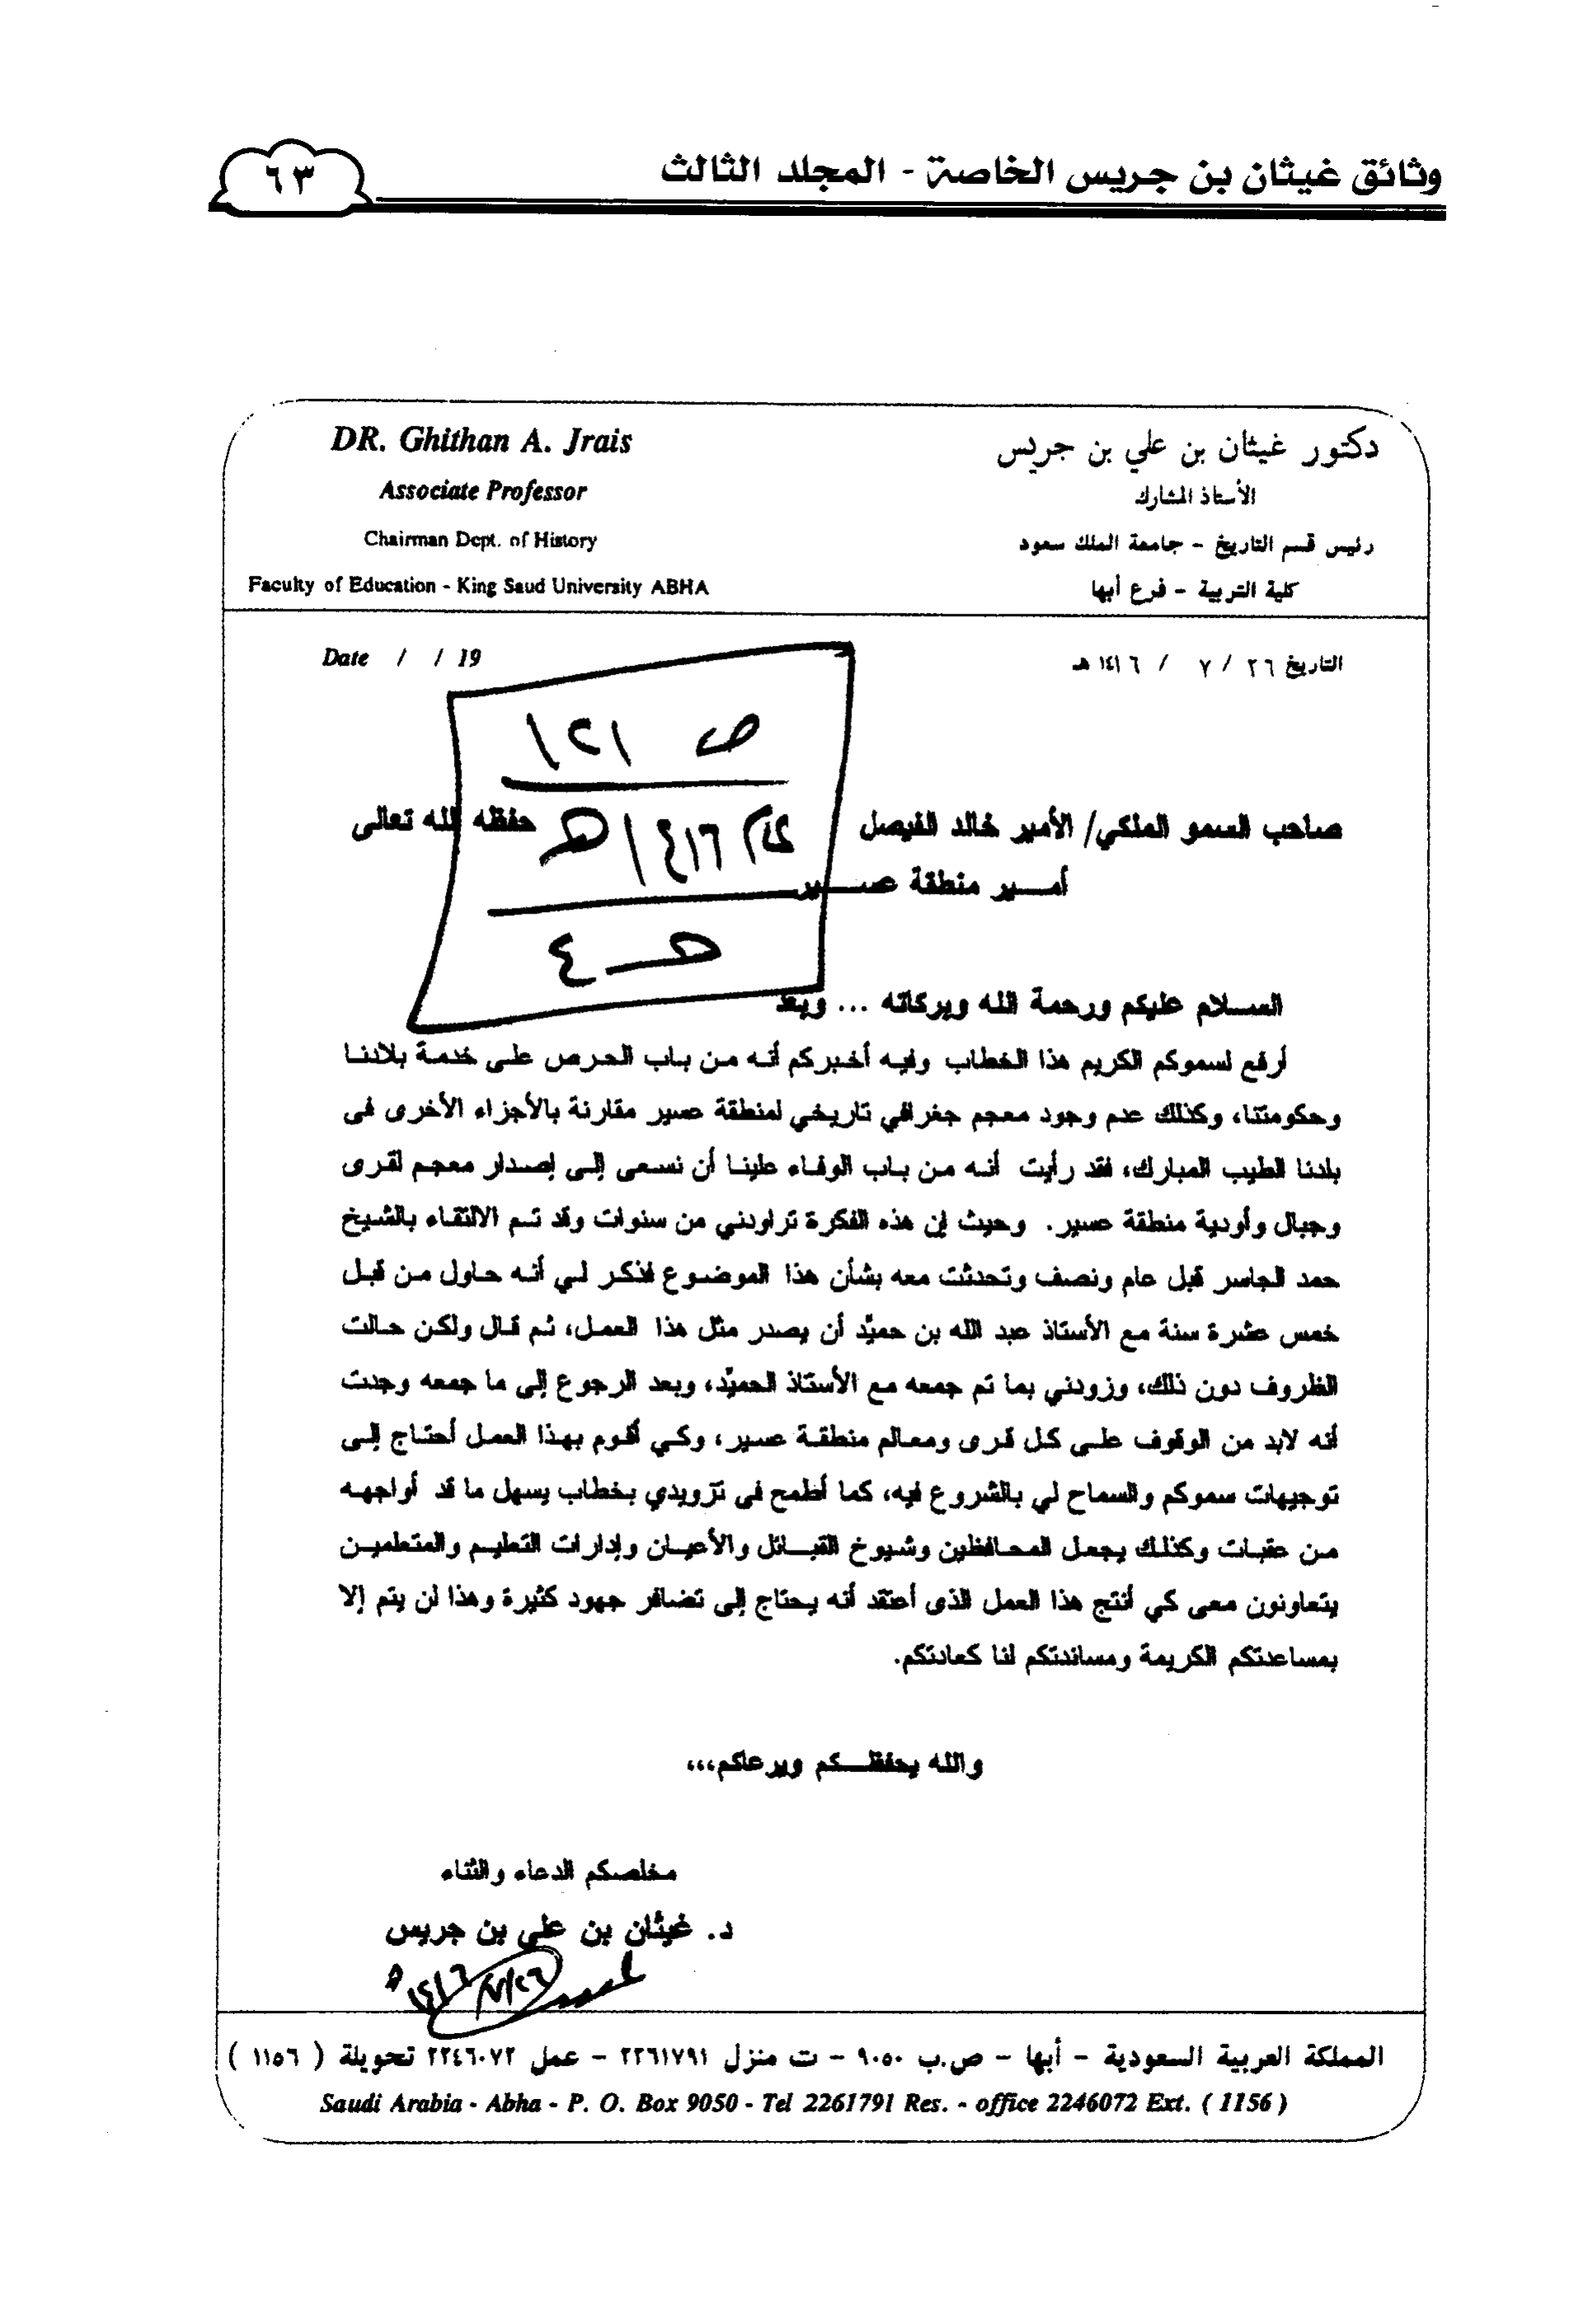 وثائق غيثان بن جريس الخاصة - المجلد الثالث
٦٣
دكتور غيثان بن علي بن جريس
الأستاذ المشارك
رئيس قسم التاريخ - جامعة الملك سعود
كلية التربية - فرع أبها
DR. Ghithan A. Jrais
Associate Professor
Chairman Dept. of History
Faculty of Education - King Saud University ABHA
التاريخ ٢٦ / ٧ / ١٤١٦ هـ
Date / / 19
ص ١٢١
١٤١٦هـ
هـ ٤
صاحب السمو الملكي/ الأمير خالد الفيصل حفظه الله تعالى
أمـــير منطقة عســـير
الســلام عليكم ورحمة الله وبركاته ... وبعد
أرفع لسموكم الكريم هذا الخطاب وفيه أخبركم أنه من باب الحرص على خدمة بلادنا
وحكومتنا، وكذلك عدم وجود معجم جغرافي تاريخي لمنطقة عسير مقارنة بالأجزاء الأخرى فى
بلدنا الطيب المبارك، فقد رأيت أنه من باب الوفاء علينا أن نسعى إلى إصدار معجم لقرى
وجبال وأودية منطقة عسير. وحيث إن هذه الفكرة تراودني من سنوات وقد تم الالتقاء بالشيخ
حمد الجاسر قبل عام ونصف وتحدثت معه بشأن هذا الموضوع فذكر لي أنه حاول من قبل
خمس عشرة سنة مع الأستاذ عبد الله بن حميّد أن يصدر مثل هذا العمل، ثم قال ولكن حالت
الظروف دون ذلك، وزودني بما تم جمعه مع الأستاذ الحميّد، وبعد الرجوع إلى ما جمعه وجدت
أنه لابد من الوقوف على كل قرى ومعالم منطقة عسير، وكي أقوم بهذا العمل أحتاج إلى
توجيهات سموكم والسماح لي بالشروع فيه، كما أطمح فى تزويدي بخطاب يسهل ما قد أواجهه
من عقبات وكذلك يجعل المحافظين وشيوخ القبائل والأعيان وإدارات التعليم والمتعلمين
يتعاونون معى كي أنتج هذا العمل الذى أعتقد أنه يحتاج إلى تضافر جهود كثيرة وهذا لن يتم إلا
بمساعدتكم الكريمة ومساندتكم لنا كعادتكم.
والله يحفظـــكم ويرعاكم،،،
مخلصكم الدعاء والثناء
د. غيثان بن علي بن جريس
٢٦/٧/١٤١٦ه
المملكة العربية السعودية - أبها - ص.ب ٩٠٥٠ - ت منزل ٢٢٦١٧٩١ - عمل ٢٢٤٦٠٧٢ تحويلة ( ١١٥٦ )
Saudi Arabia - Abha - P. O. Box 9050 - Tel 2261791 Res. - office 2246072 Ext. ( 1156 )